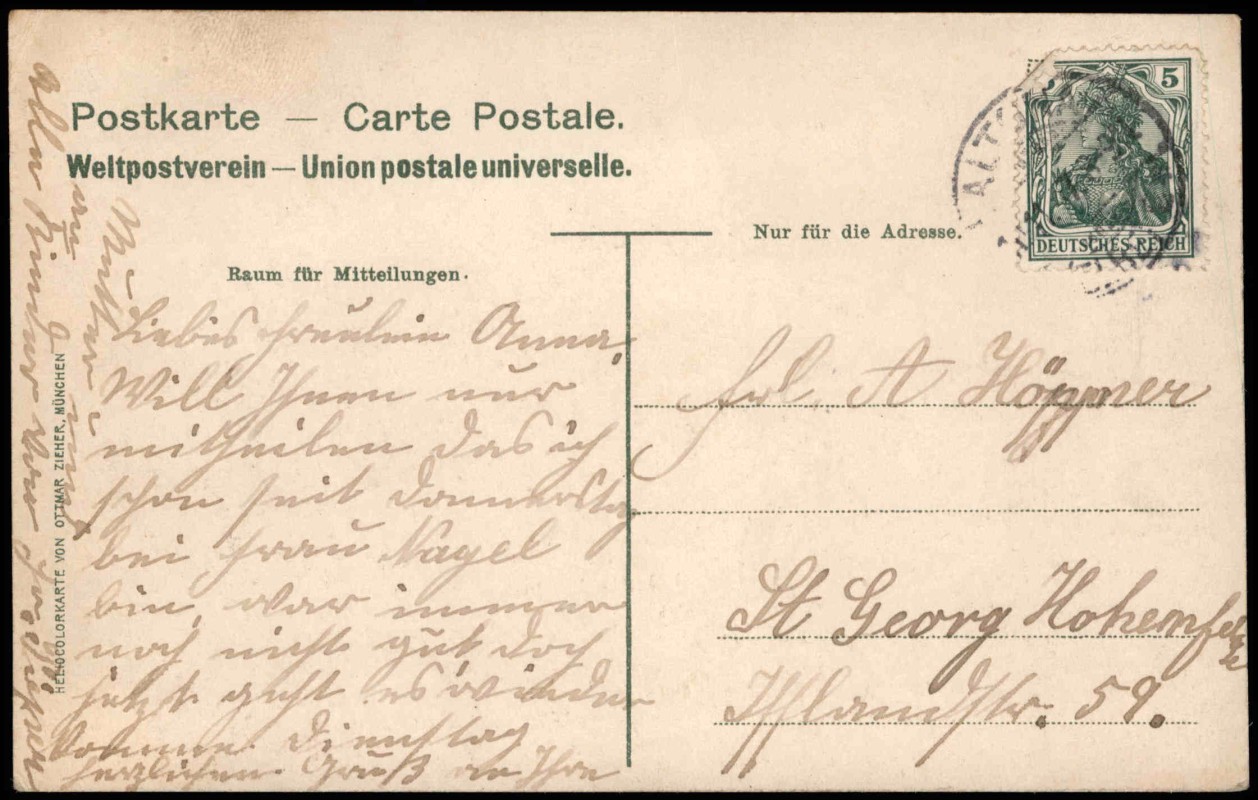 Postkarte — Carte Postale.
Weltpostverein — Union postale universelle.
Nur für die Adresse.
Raum für Mitteilungen.
5
DEUTSCHES REICH
ALTO
Liebes Fräulein Anna,
Will Ihnen nur
mitheilen das ich
schon seit Donnerstag
bei Frau Nagel
bin, war immer
noch nicht gut doch
jetzt geht es wieder
komme Dienstag
herzlichen Gruß an Ihre
Mutter und
an
allen Kinder von
Frl. A Höppner
St Georg Hohenfelde
Ifflandstr. 59.
HELIOCOLORKARTE VON OTTMAR ZIEHER, MÜNCHEN